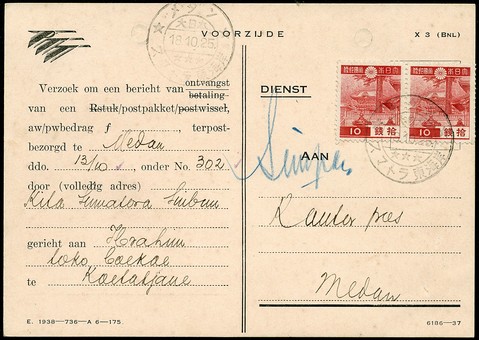 VOORZIJDE
X 3 (BNL)
メダン
18.10.25
Verzoek om een bericht van ontvangst
betaling
van een Rstuk/postpakket/postwissel,
aw/pwbedrag ƒ terpost-
bezorgd te Medan
ddo. 13/10, onder No. 302
door (volledig adres)
Kita Sumatora Sinbun
gericht aan Ibrahim
toko
te Koetatjane
E. 1938—736—A 6—175.
DIENST
AAN
Kantor pos
Medan
大日本帝國郵便
10 拾錢
大日本帝國郵便
10 拾錢
スマトラ
6186—37